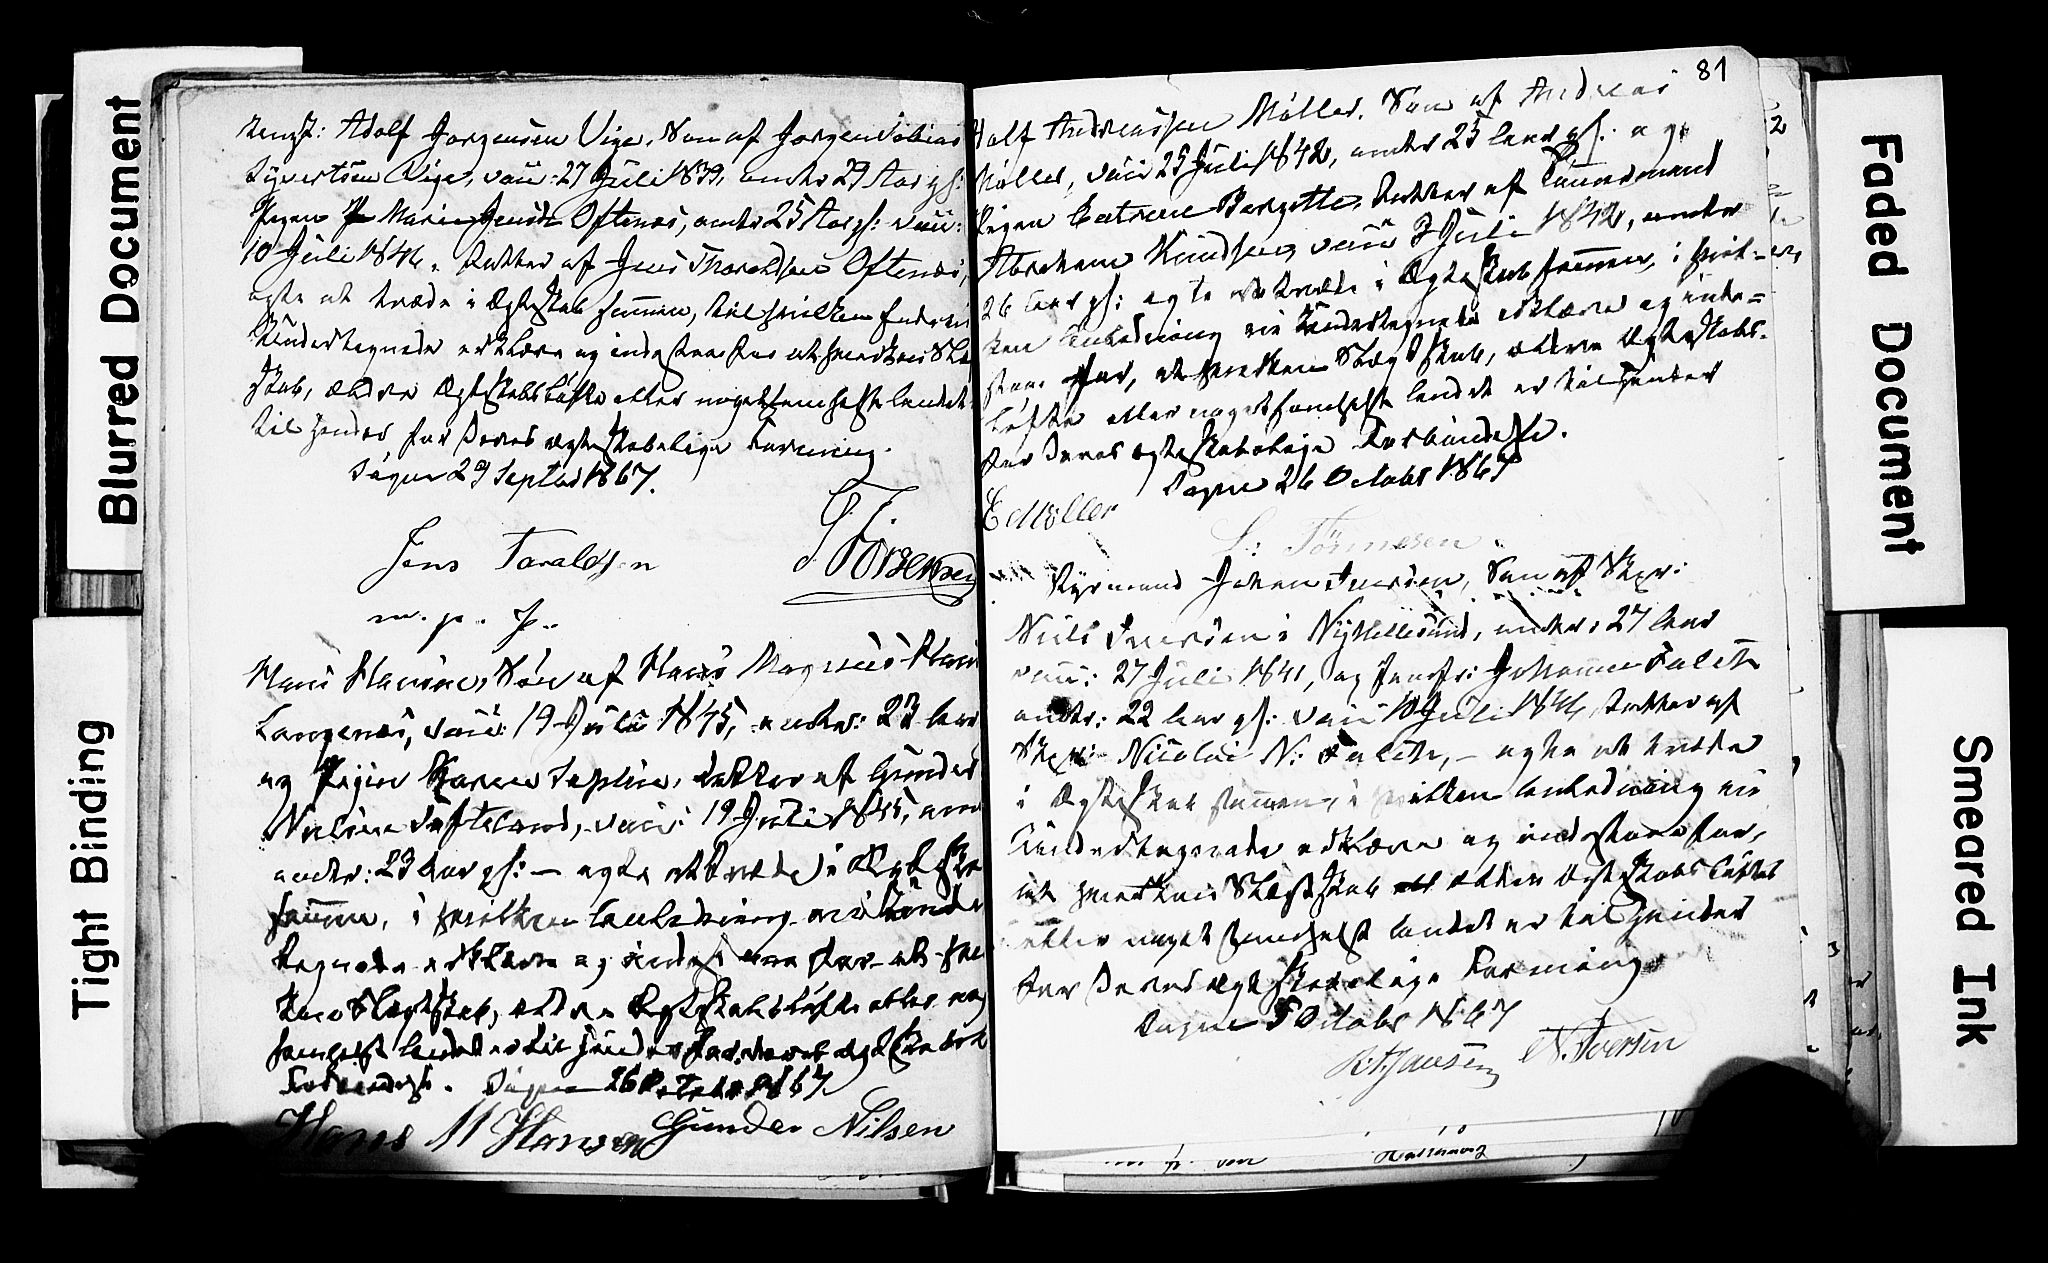 Blurred Document
Tight Binding
Ungk: Adolf Jørgensen Vige, Søn af Jørgen Tobias
Syvertsen Vige, vacc: 27 Juli 1839, 29 Aar gl:
Pigen Marie Jensdr Oftenæs, 25 Aar gl: vacc:
10 Juli 1844, Datter af Jens Thoraldsen Oftenæs,
agte at træde i Ægteskab sammen, til hvilken
Undertegnede erklære og indestaar for at hverken Slæ
skab, ældre Ægteskabsløfte eller noget somhelst andet
til Hinder for deres ægteskabelige Forening.
Søgne 29 Septbr 1867.
Jens Taraldsen
m. p. P.
T Jørgensen
Hans Hansen, Søn af Hans Magnus Hansen
Langenæs, vacc: 19 Juli 1845, 23 Aar
og Pigen Karen Sophie, Datter af Gunder
Nielsen Tofteland, vacc: 19 Juli 1845,
23 Aar gl: — agte at træde i Ægteska
sammen, i hvilken Anledning vi Unde
tegnede erklære og indestaae for at hve
ken Slægtskab, ældre Ægteskabsløfte eller nog
somhelst andet er til Hinder for deres ægteskabel
Forbindelse. Søgne 26 October 1867.
Hans M Hansen Gunder Nilsen
81
Adolf Andreassen Møller, Søn af Andreas
Møller, vacc 25 Juli 1842, 25 Aar gl: og
Pigen Catrine Bergitte, Datter af Tømmermand
Abraham Knudsen, vacc 3 Juli 1842,
26 Aar gl: agte at træde i Ægteskab sammen, i hvil-
ken Anledning vi Undertegnede erklære og inde=
staae for, at hverken Slægtskab, ældre Ægteskabs-
løfte eller noget somhelst andet er til Hinder
for deres ægteskabelige Forbindelse.
Søgne 26 Octobr 1867
E Møller
S: Tönnesen
Styrmand Johan Iversen, Søn af Skpr:
Niels Iversen i Ny Hellesund, 27 Aar
vacc: 27 Juli 1841, og Jomfr: Johanne Falck
22 Aar gl: vacc 10 Juli 1846, Datter af
Skpr: Nicolai N: Falck, - agte at træde
i Ægteskab sammen, i hvilken Anledning vi
Undertegnede erklære og indestaae for,
at hverken Slægtskab ældre Ægteskabsløfte
eller noget somhelst andet er til Hinder
for deres ægteskabelige Forening
Søgne 5 Octobr 1867
N. Iversen
Faded Document
Smeared Ink